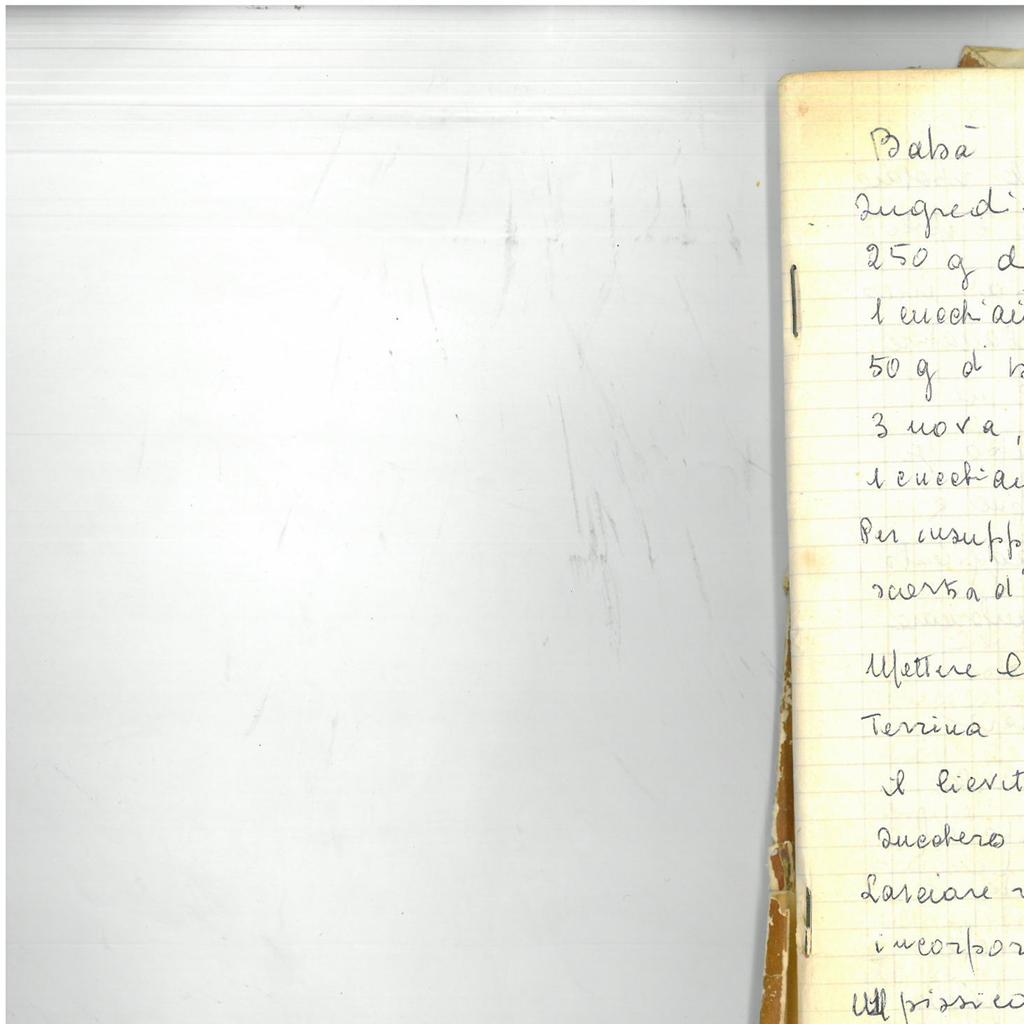 Babà
Ingredi
250 g d
1 cucchiai
50 g di b
3 uova,
1 cucchia
Per insupp
scorza d'
Mettere l
Terrina
il lievit
zucchero
Lasciare r
incorpor
un pizzico